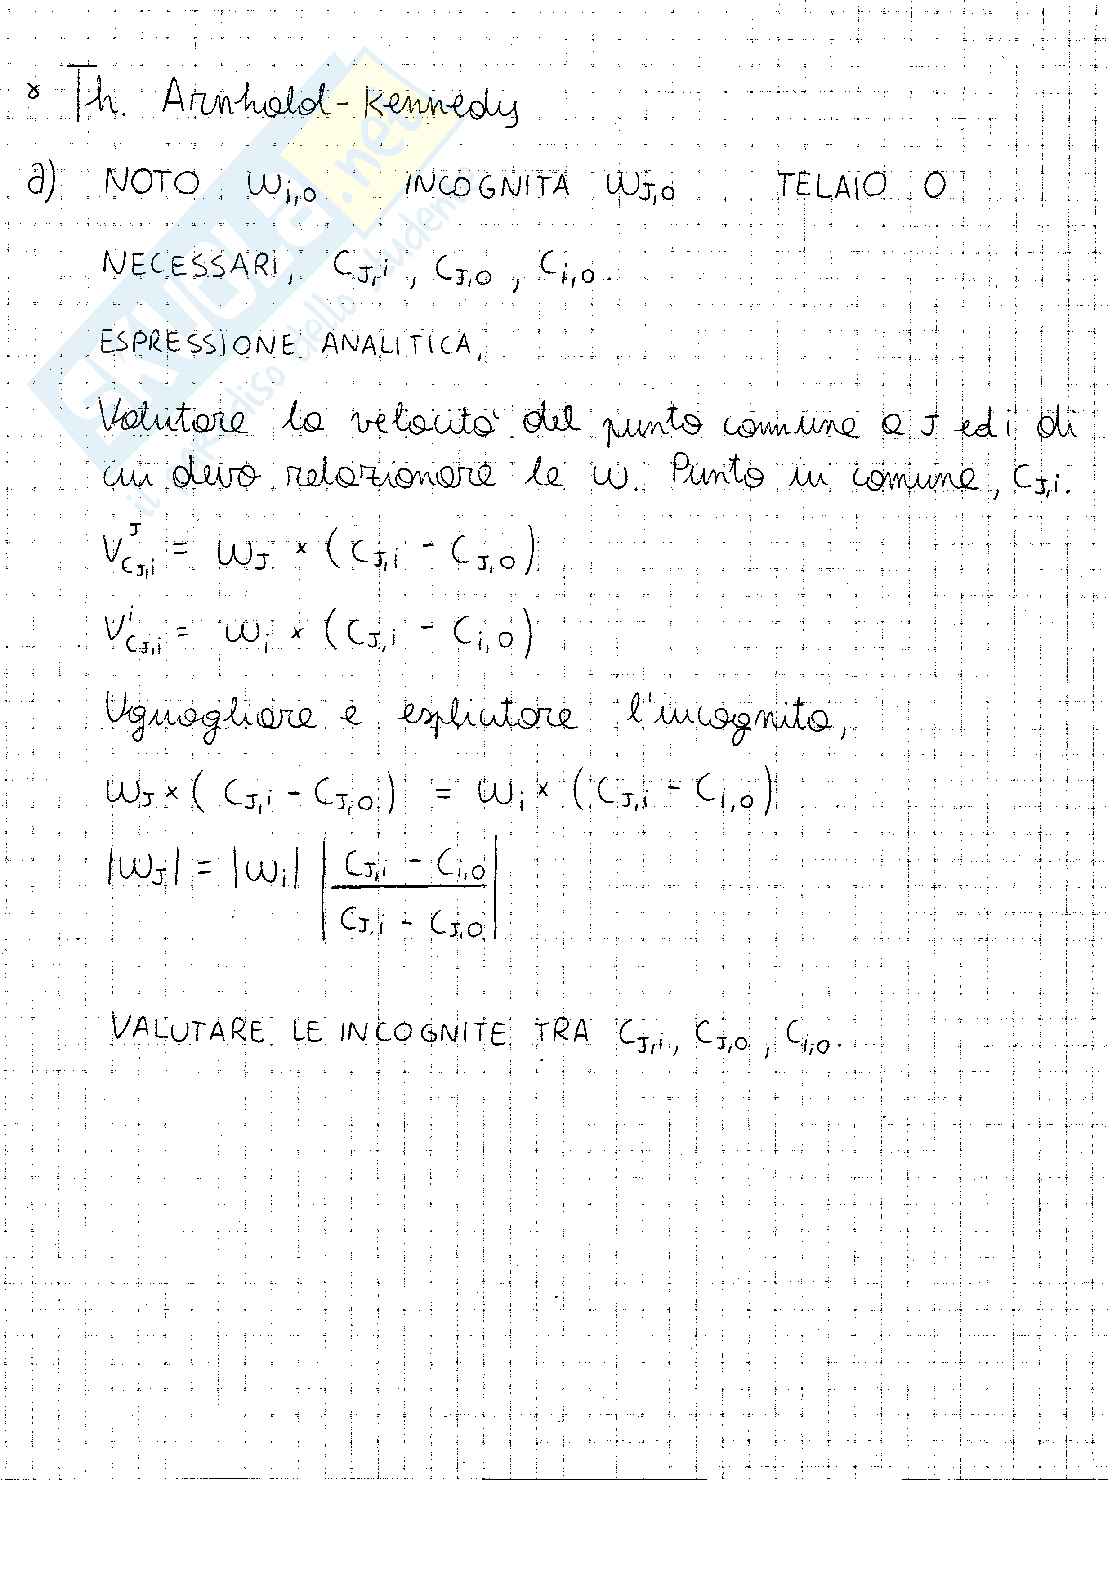 * Th. Arnhold-Kennedy
a) NOTO ω_{i,0} INCOGNITA ω_{J,0} TELAIO 0
NECESSARI, C_{J,i}, C_{J,0}, C_{i,0}.
ESPRESSIONE ANALITICA,
Valutare la velocità del punto comune a J ed i di
cui devo relazionare le ω. Punto in comune, C_{J,i}.
V^{J}_{C_{J,i}} = ω_J × (C_{J,i} - C_{J,0})
V^{i}_{C_{J,i}} = ω_i × (C_{J,i} - C_{i,0})
Uguagliare e esplicitare l'incognita,
ω_J × (C_{J,i} - C_{J,0}) = ω_i × (C_{J,i} - C_{i,0})
|ω_J| = |ω_i| |C_{J,i} - C_{i,0} / C_{J,i} - C_{J,0}|
VALUTARE LE INCOGNITE TRA C_{J,i}, C_{J,0}, C_{i,0}.